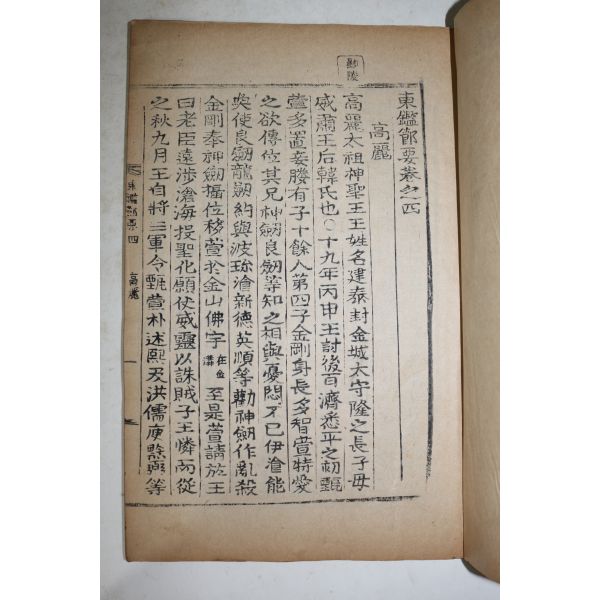 東鑑節要卷之四
高麗
高麗太祖神聖王王姓名建泰封金城太守隆之長子母
威肅王后韓氏也○十九年丙申王討後百濟悉平之初甄
萱多置妾媵有子十餘人第四子金剛身長多智萱特愛
之欲傳位其兄神劒良劒等知之相與憂悶不已伊飡能
奐使良劒龍劒約與波珍飡新德英順等勸神劒作亂殺
金剛奉神劒攝位移萱於金山佛宇在金溝至是萱請於王
曰老臣遠涉滄海投聖化願使威靈以誅賊子王憐而從
之秋九月王自將三軍令甄萱朴述熙及洪儒庾黔弼等
東鑑節要四 高麗